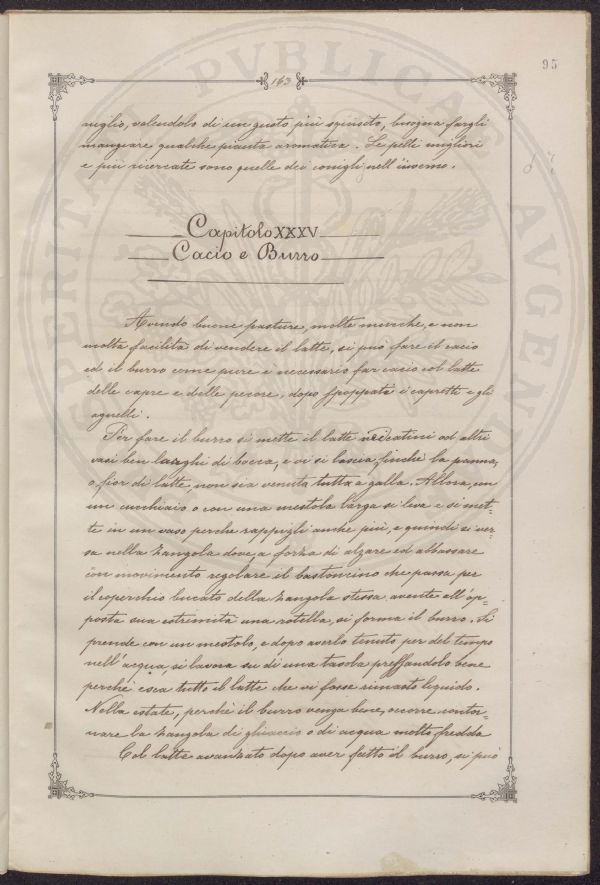 163
95
niglio, volendolo di un gusto più squisito, bisogna fargli
mangiare qualche pianta aromatica. Le pelli migliori
e più ricercate sono quelle dei conigli nell'inverno.
Capitolo XXXV
Cacio e Burro
Avendo buone pasture, molte mucche, e non
molta facilità di vendere il latte, si può fare il cacio
ed il burro come pure è necessario far cacio col latte
delle capre e delle pecore, dopo spoppati i capretti e gli
agnelli.
Per fare il burro si mette il latte nei catini od altri
vasi ben larghi di bocca, e vi si lascia, finché la panna,
o fior di latte, non sia venuta tutta a galla. Allora, con
un cucchiaio o con una mestola larga si leva e si met-
te in un vaso perché rappigli anche più, e quindi si ver-
sa nella zangola dove, a forza di alzare ed abbassare
con movimento regolare il bastoncino che passa pel
il coperchio bucato della zangola stessa avente all'op-
posta sua estremità una rotella, si forma il burro. Si
prende con un mestolo, e dopo averlo tenuto per del tempo
nell'acqua, si lavora su di una tavola pressandolo bene
perché esca tutto il latte che vi fosse rimasto liquido.
Nella estate, perché il burro venga bene, occorre contor-
nare la zangola di ghiaccio o di acqua molto fredda
Col latte avanzato dopo aver fatto il burro, si può